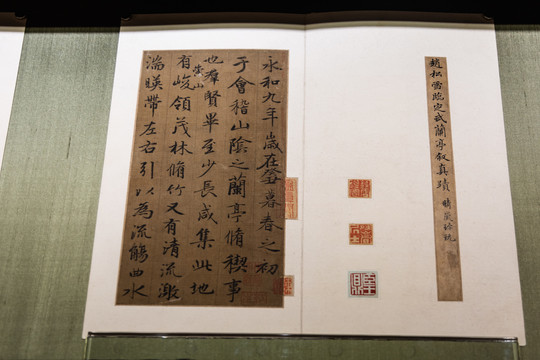 趙松雪臨定武蘭亭叙真蹟
永和九年歲在癸暮春之初
于會稽山陰之蘭亭脩稧事
也羣賢畢至少長咸集此地
有峻領茂林脩竹又有清流激
崇山
湍暎帶左右引以為流觴曲水